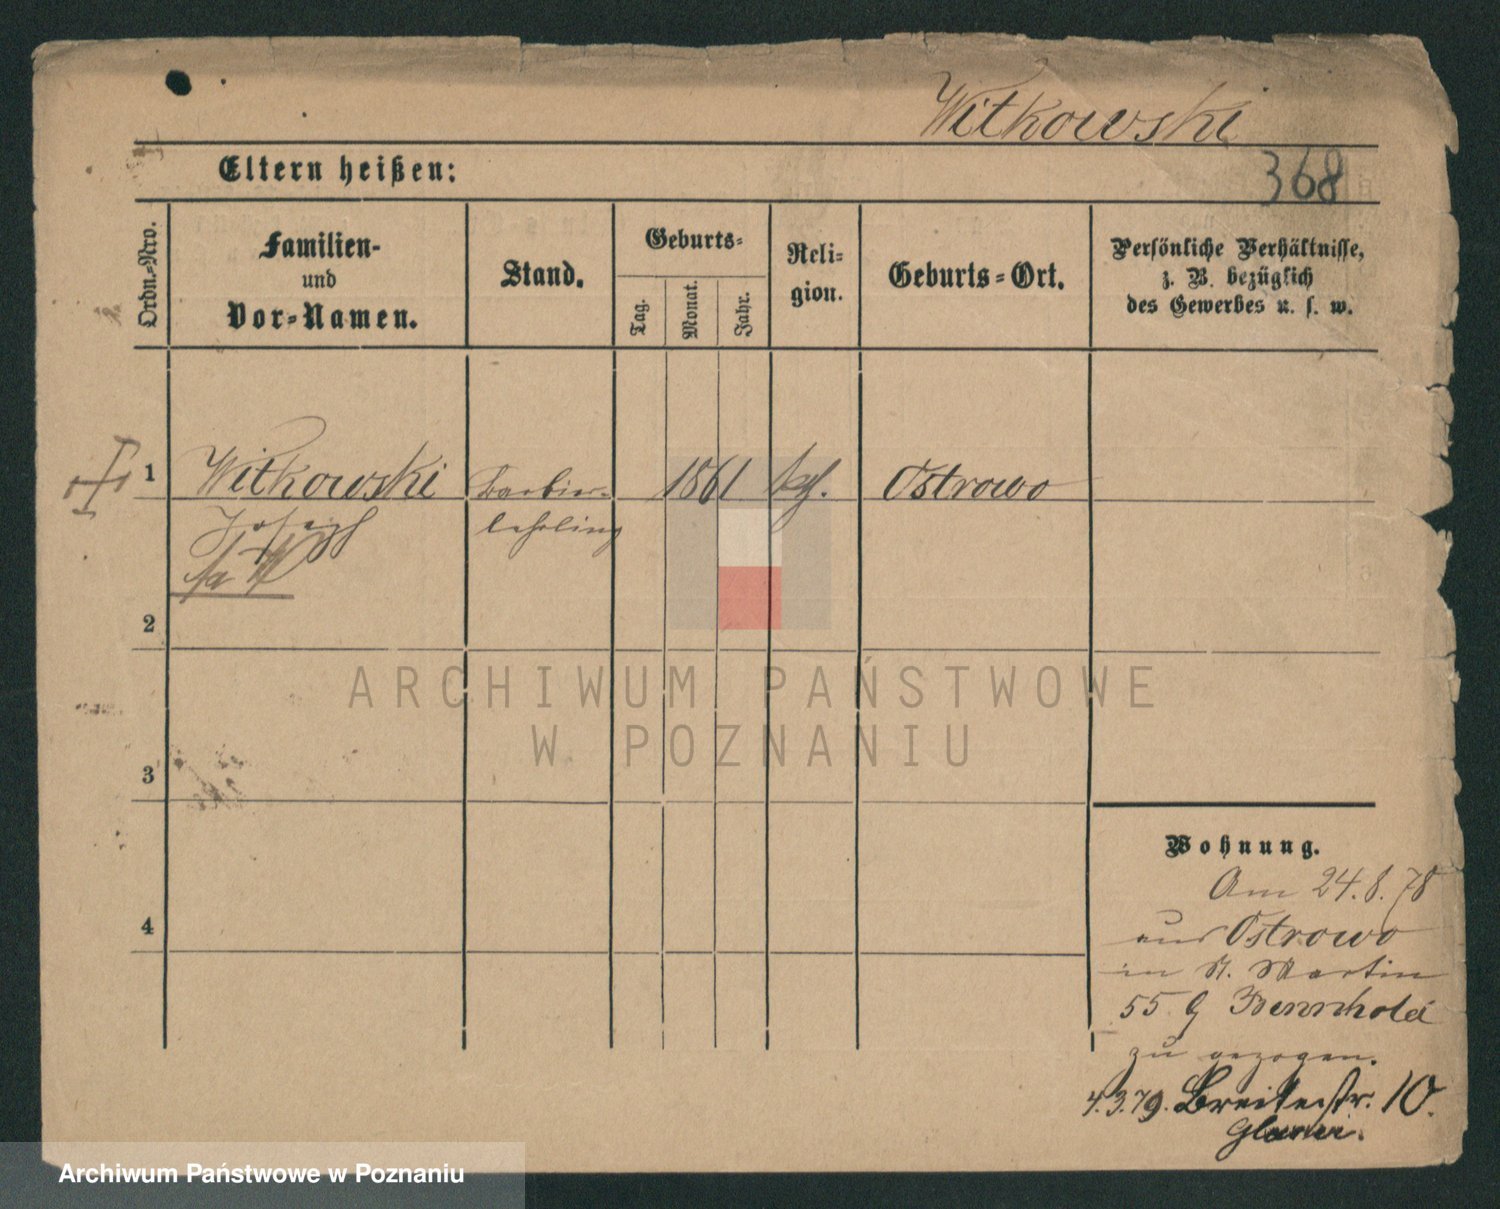 Witkowski
Eltern heißen:
368
Ordn.-Nro.
Familien-
und
Vor-Namen.
Stand.
Geburts-
Tag.
Monat.
Jahr.
Reli-
gion.
Geburts-Ort.
Persönliche Verhältnisse,
z. B. bezüglich
des Gewerbes u. s. w.
1
Witkowski
Barbier-
1861
kth.
Ostrowo
Joseph
lehrling
2
3
4
Wohnung.
Am 24.8.78
aus Ostrowo
in St. Martin
55 Bennhold
zu gezogen.
4.3.79. Breitestr. 10.
ARCHIWUM PAŃSTWOWE
W POZNANIU
Archiwum Państwowe w Poznaniu